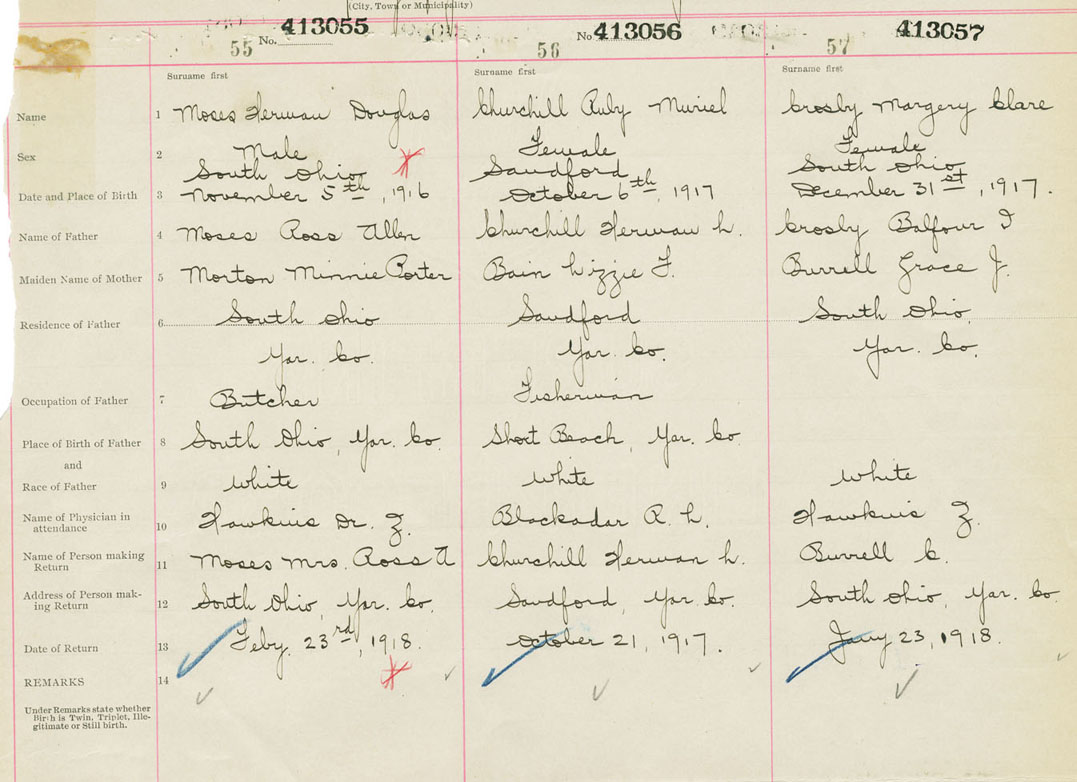 (City, Town or Municipality)
No. 413055 No 413056 413057
55 56 57
Surname first Surname first Surname first
Name 1 Moses Herman Douglas Churchill Ruby Muriel Crosby Margery Clare
Sex 2 Male Female Female
South Ohio Sandford South Ohio
Date and Place of Birth 3 November 5th, 1916 October 6th, 1917 December 31st, 1917.
Name of Father 4 Moses Ross Allen Churchill Herman L. Crosby Balfour I
Maiden Name of Mother 5 Morton Minnie Porter Bain Lizzie F. Burrell Grace J.
Residence of Father 6 South Ohio Sandford South Ohio.
Yar. Co. Yar. Co. Yar. Co.
Occupation of Father 7 Butcher Fisherman
Place of Birth of Father 8 South Ohio, Yar. Co. Short Beach, Yar. Co.
and
Race of Father 9 White White White
Name of Physician in
attendance 10 Hawkins Dr. Z. Blackadar R. L. Hawkins Z.
Name of Person making
Return 11 Moses Mrs. Ross A Churchill Herman L. Burrell C.
Address of Person mak-
ing Return 12 South Ohio, Yar. Co. Sandford, Yar. Co. South Ohio, Yar. Co.
Date of Return 13 Feby. 23rd, 1918. October 21, 1917. Jany 23, 1918.
REMARKS 14
Under Remarks state whether
Birth is Twin, Triplet, Ille-
gitimate or Still birth.